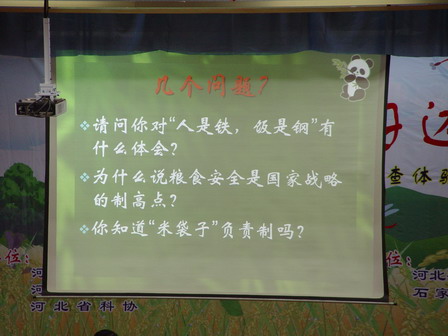 几个问题？
请问你对“人是铁，饭是钢”有
什么体会？
为什么说粮食安全是国家战略
的制高点？
你知道“米袋子”负责制吗？
查体验
位：
河
河北省科协
位：
河北
石家